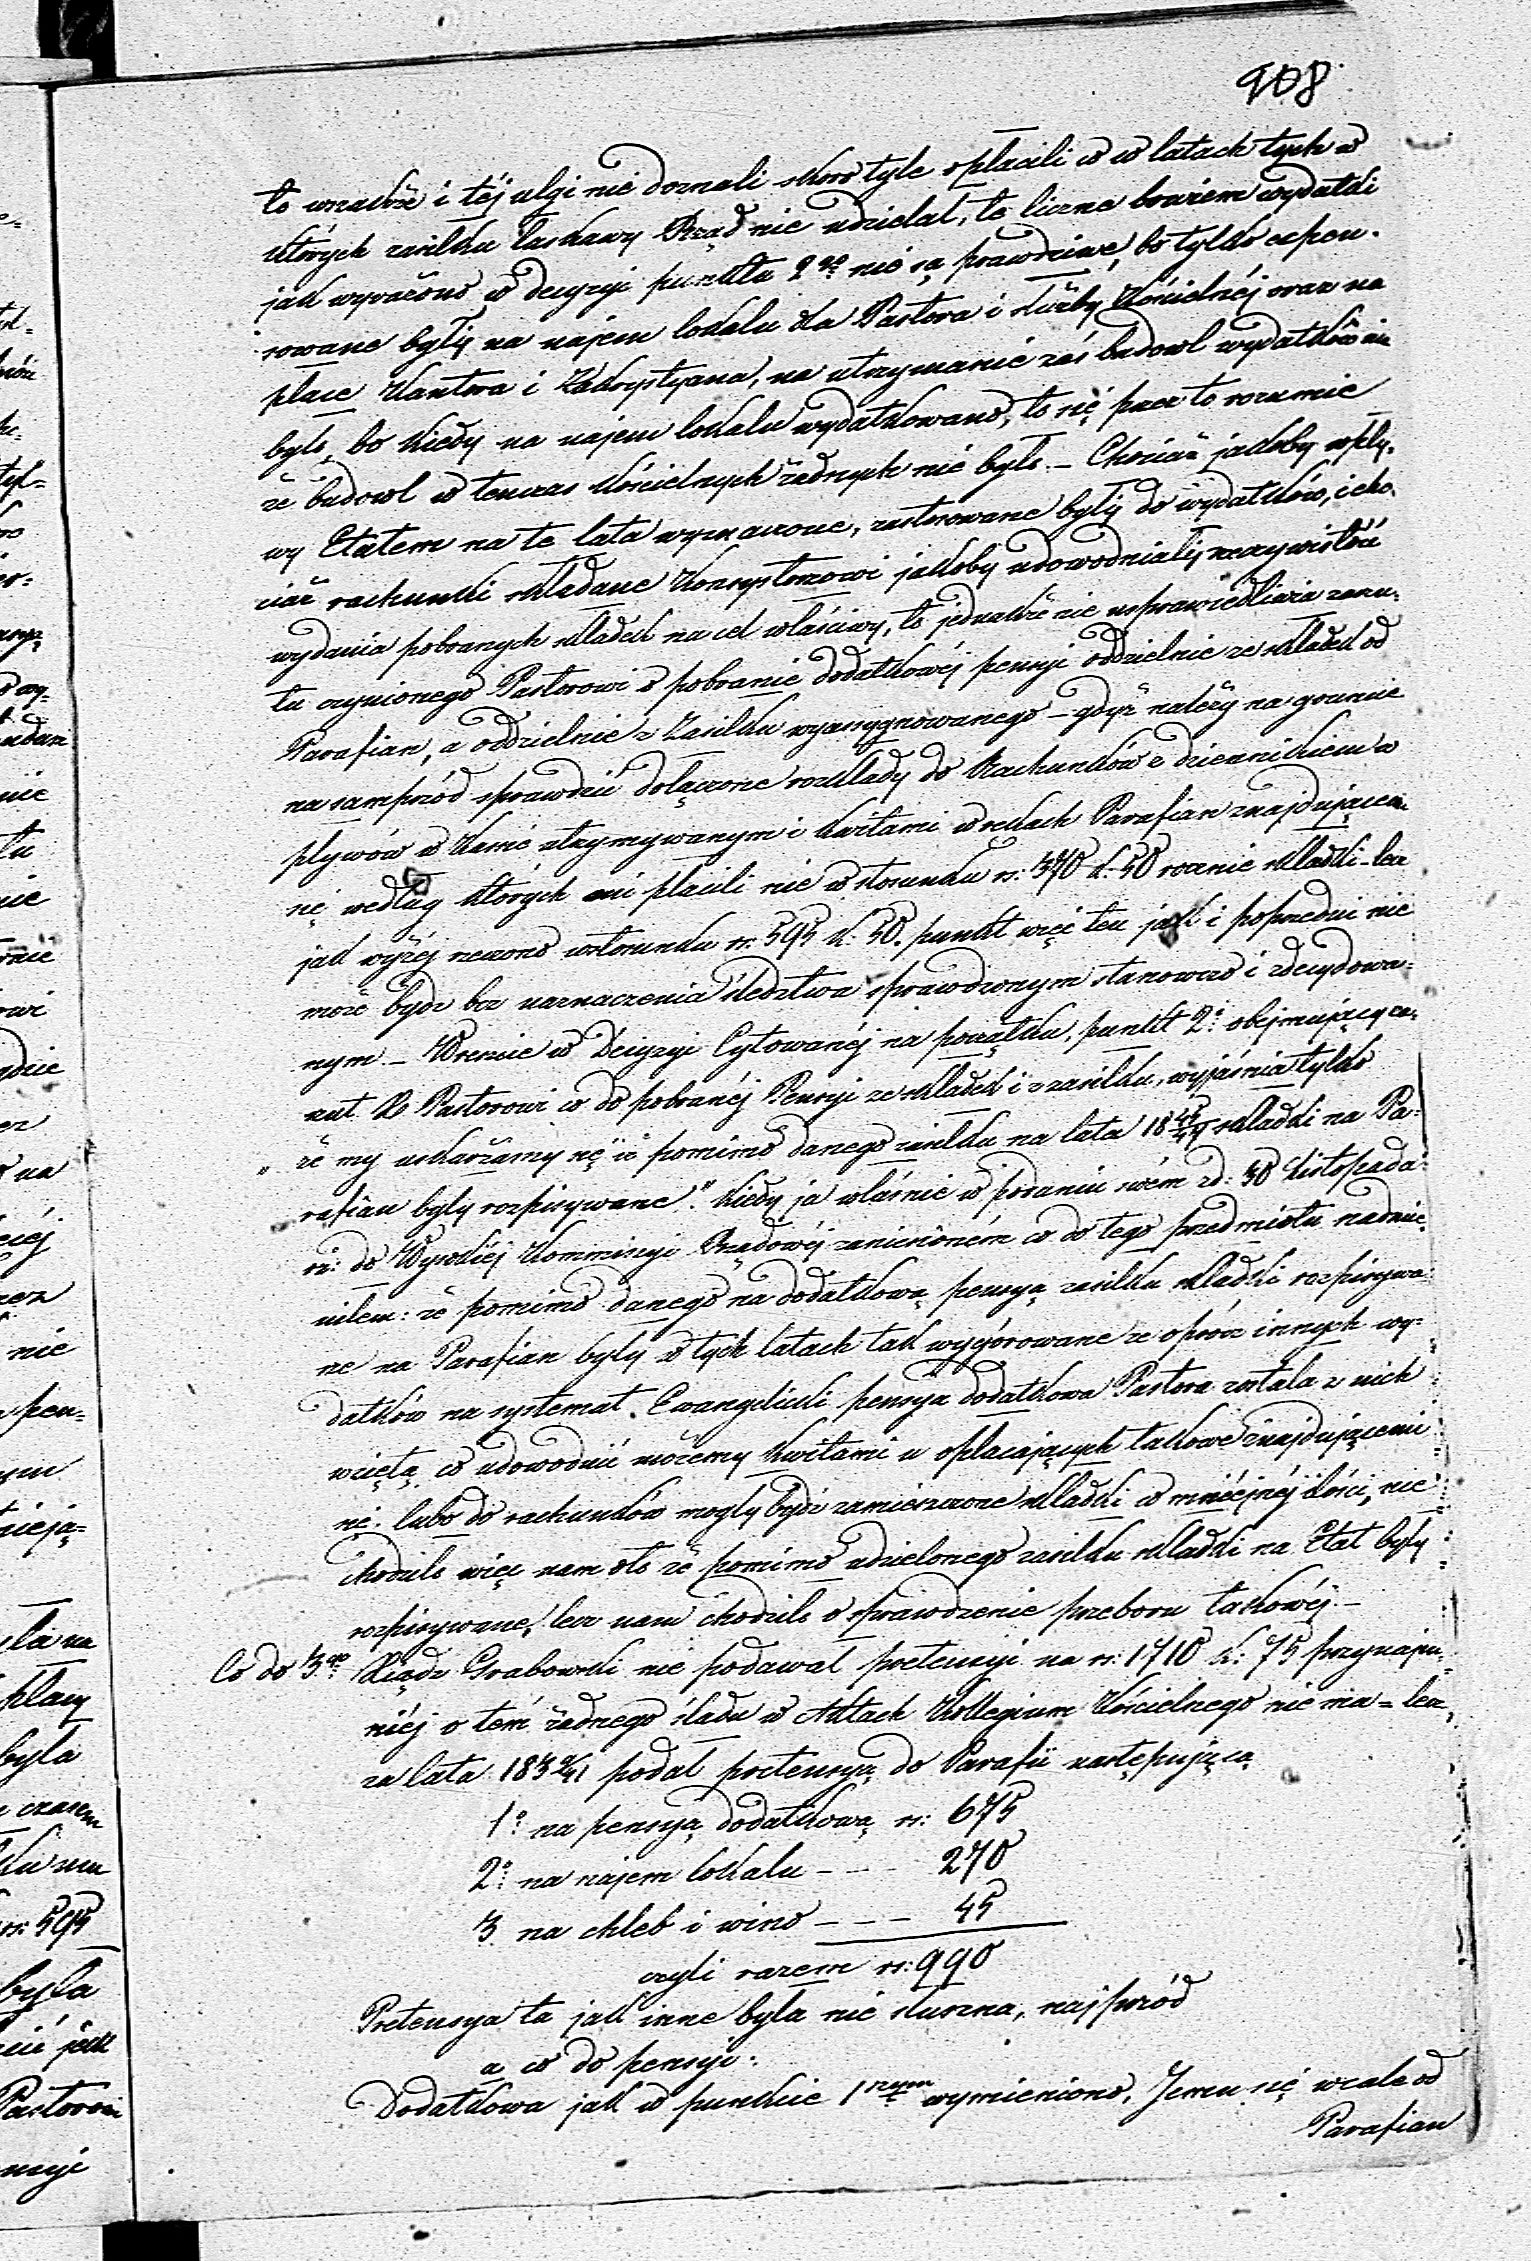 908
to wszakże i téj ulgi nie doznali skoro tyle opłacili co w latach tych w
których zasiłku łaskawy Rząd nie udzielał, te liczne bowiem wydatki
jak wyrażono w decyzyi punktu 2go nie są prawdziwe, bo tylko expen-
sowane były na najem lokalu dla Pastora i służby Kościelnéj oraz na
płace Kantora i Zakrystyana, na utrzymanie zaś budowl wydatków nie
było, bo kiedy na najem lokalu wydatkowano, to się przez to rozumie
że budowl w tenczas Kościelnych żadnych nie było. – Chociaż jakoby wpły-
wy Etatem na te lata wyznaczone, zastosowane były do wydatków, i cho-
ciaż rachunki składane Konsystorzowi jakoby udowodniały rzeczywistość
wydania pobranych składek na cel właściwy, to jednakże nie usprawiedliwia zarzu-
tu czynionego Pastorowi o pobranie dodatkowéj pensyi oddzielnie ze składek od
Parafian, a oddzielnie z Zasiłku wyassygnowanego – gdyż należy na gruncie
na samprzód sprawdzić dołączone rozkłady do Rachunków z dziennikiem w
pływów w Kassie utrzymywanym i kwitami w rękach Parafian znajdującemi
się według których oni płacili nie w stosunku rs: 370 k. 50 rocznie składki – lecz
jak wyżéj rzeczono w stosunku rs: 595 k. 50. punkt więc ten jak i poprzedni nie
może bydź bez naznaczenia śledztwa sprawdzonym stanowczo i zdecydowa-
nym. – Wreszcie w Decyzyi Cytowanéj na początku, punkt 2o obejmujący za-
rzut Ko Pastorowi co do pobranéj Pensyi ze składek i z zasiłku, wyjaśnia tylko
„ że my uskarżamy się iż pomimo danego zasiłku na lata 18 45/49 składki na Pa-
rafian były rozpisywane”. Kiedy ja właśnie w podaniu swém z d: 30 Listopada
rz: do Wysokiéj Kommissyi Rządowéj zaniesioném co do tego przedmiotu nadmie-
niłem: że pomimo danego na dodatkową pensyą zasiłku składki rozpisywa-
ne na Parafian były w tych latach tak wygórowane że oprócz innych wy-
datków na systemat. Ewangelicki pensya dodatkowa Pastora została z nich
wzięta, co udowodnić możemy kwitami u opłacających takowe znajdującemi
się. lubo do rachunków mogły bydź zamieszczone składki w mniéjszéj ilości, nie
chodziło więc nam oto że pomimo udzielonego zasiłku składki na Etat były
rozpisywane, lecz nam chodziło o sprawdzenie przeboru takowéj. –
Co do 3go Ksiądz Grabowski nie podawał pretensyi na rs: 1710 k: 75 przynajm-
niéj o tém żadnego śladu w Aktach Kollegium Kościelnego nie ma = lecz
za lata 183 9/41 podał pretensyą do Parafii następującą
1o na pensyą dodatkową rs: 675
2o na najem lokalu - - - - 270
3 na chleb i wino - - - - 45
czyli razem rs: 990
Pretensya ta jak inne była nie słuszna, najprzód
a co do pensyi:
Dodatkowa jak w punkcie 1szym wymieniono, Jemu się wcale od
Parafian